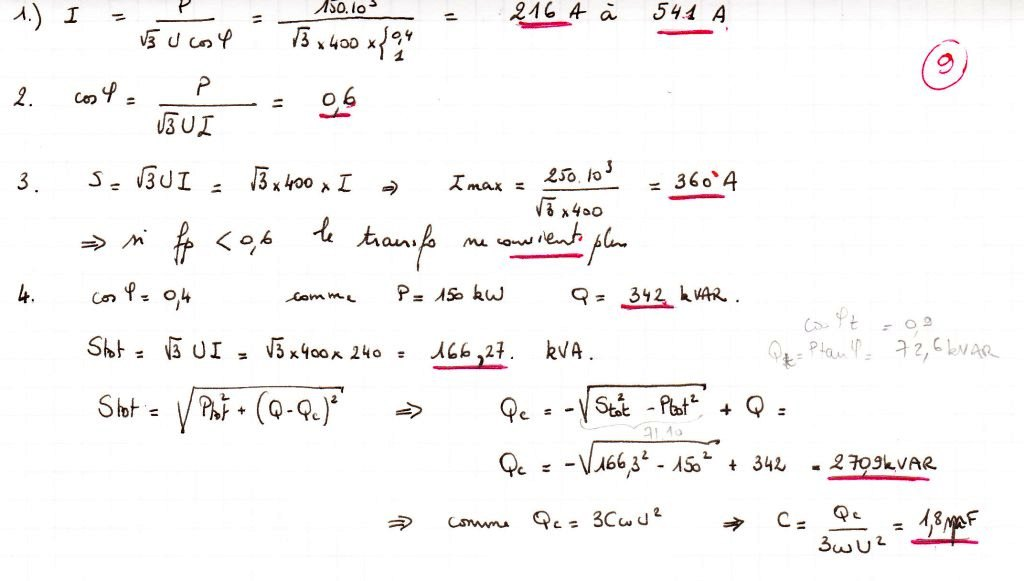 1.) I = P / √3 U cos φ = 150.10³ / √3 × 400 × { 0,4 1 = 216 A à 541 A
9
2. cos φ = P / √3 U I = 0,6
3. S = √3 U I = √3 × 400 × I ⇒ Imax = 250.10³ / √3 × 400 = 360 A
⇒ si fp < 0,6 le transfo ne convient plus
4. cos φ = 0,4 comme P = 150 kW Q = 342 kVAR.
cos φt = 0,9
Stot = √3 U I = √3 × 400 × 240 = 166,27. kVA.
Qt = P tan φ = 72,6 kVAR
Stot = √(Ptot² + (Q - Qc)²) ⇒ Qc = -√(Stot² - Ptot²) + Q =
71.10
Qc = -√(166,3² - 150²) + 342 = 270,9 kVAR
⇒ comme Qc = 3CωU² ⇒ C = Qc / 3ωU² = 1,8 F